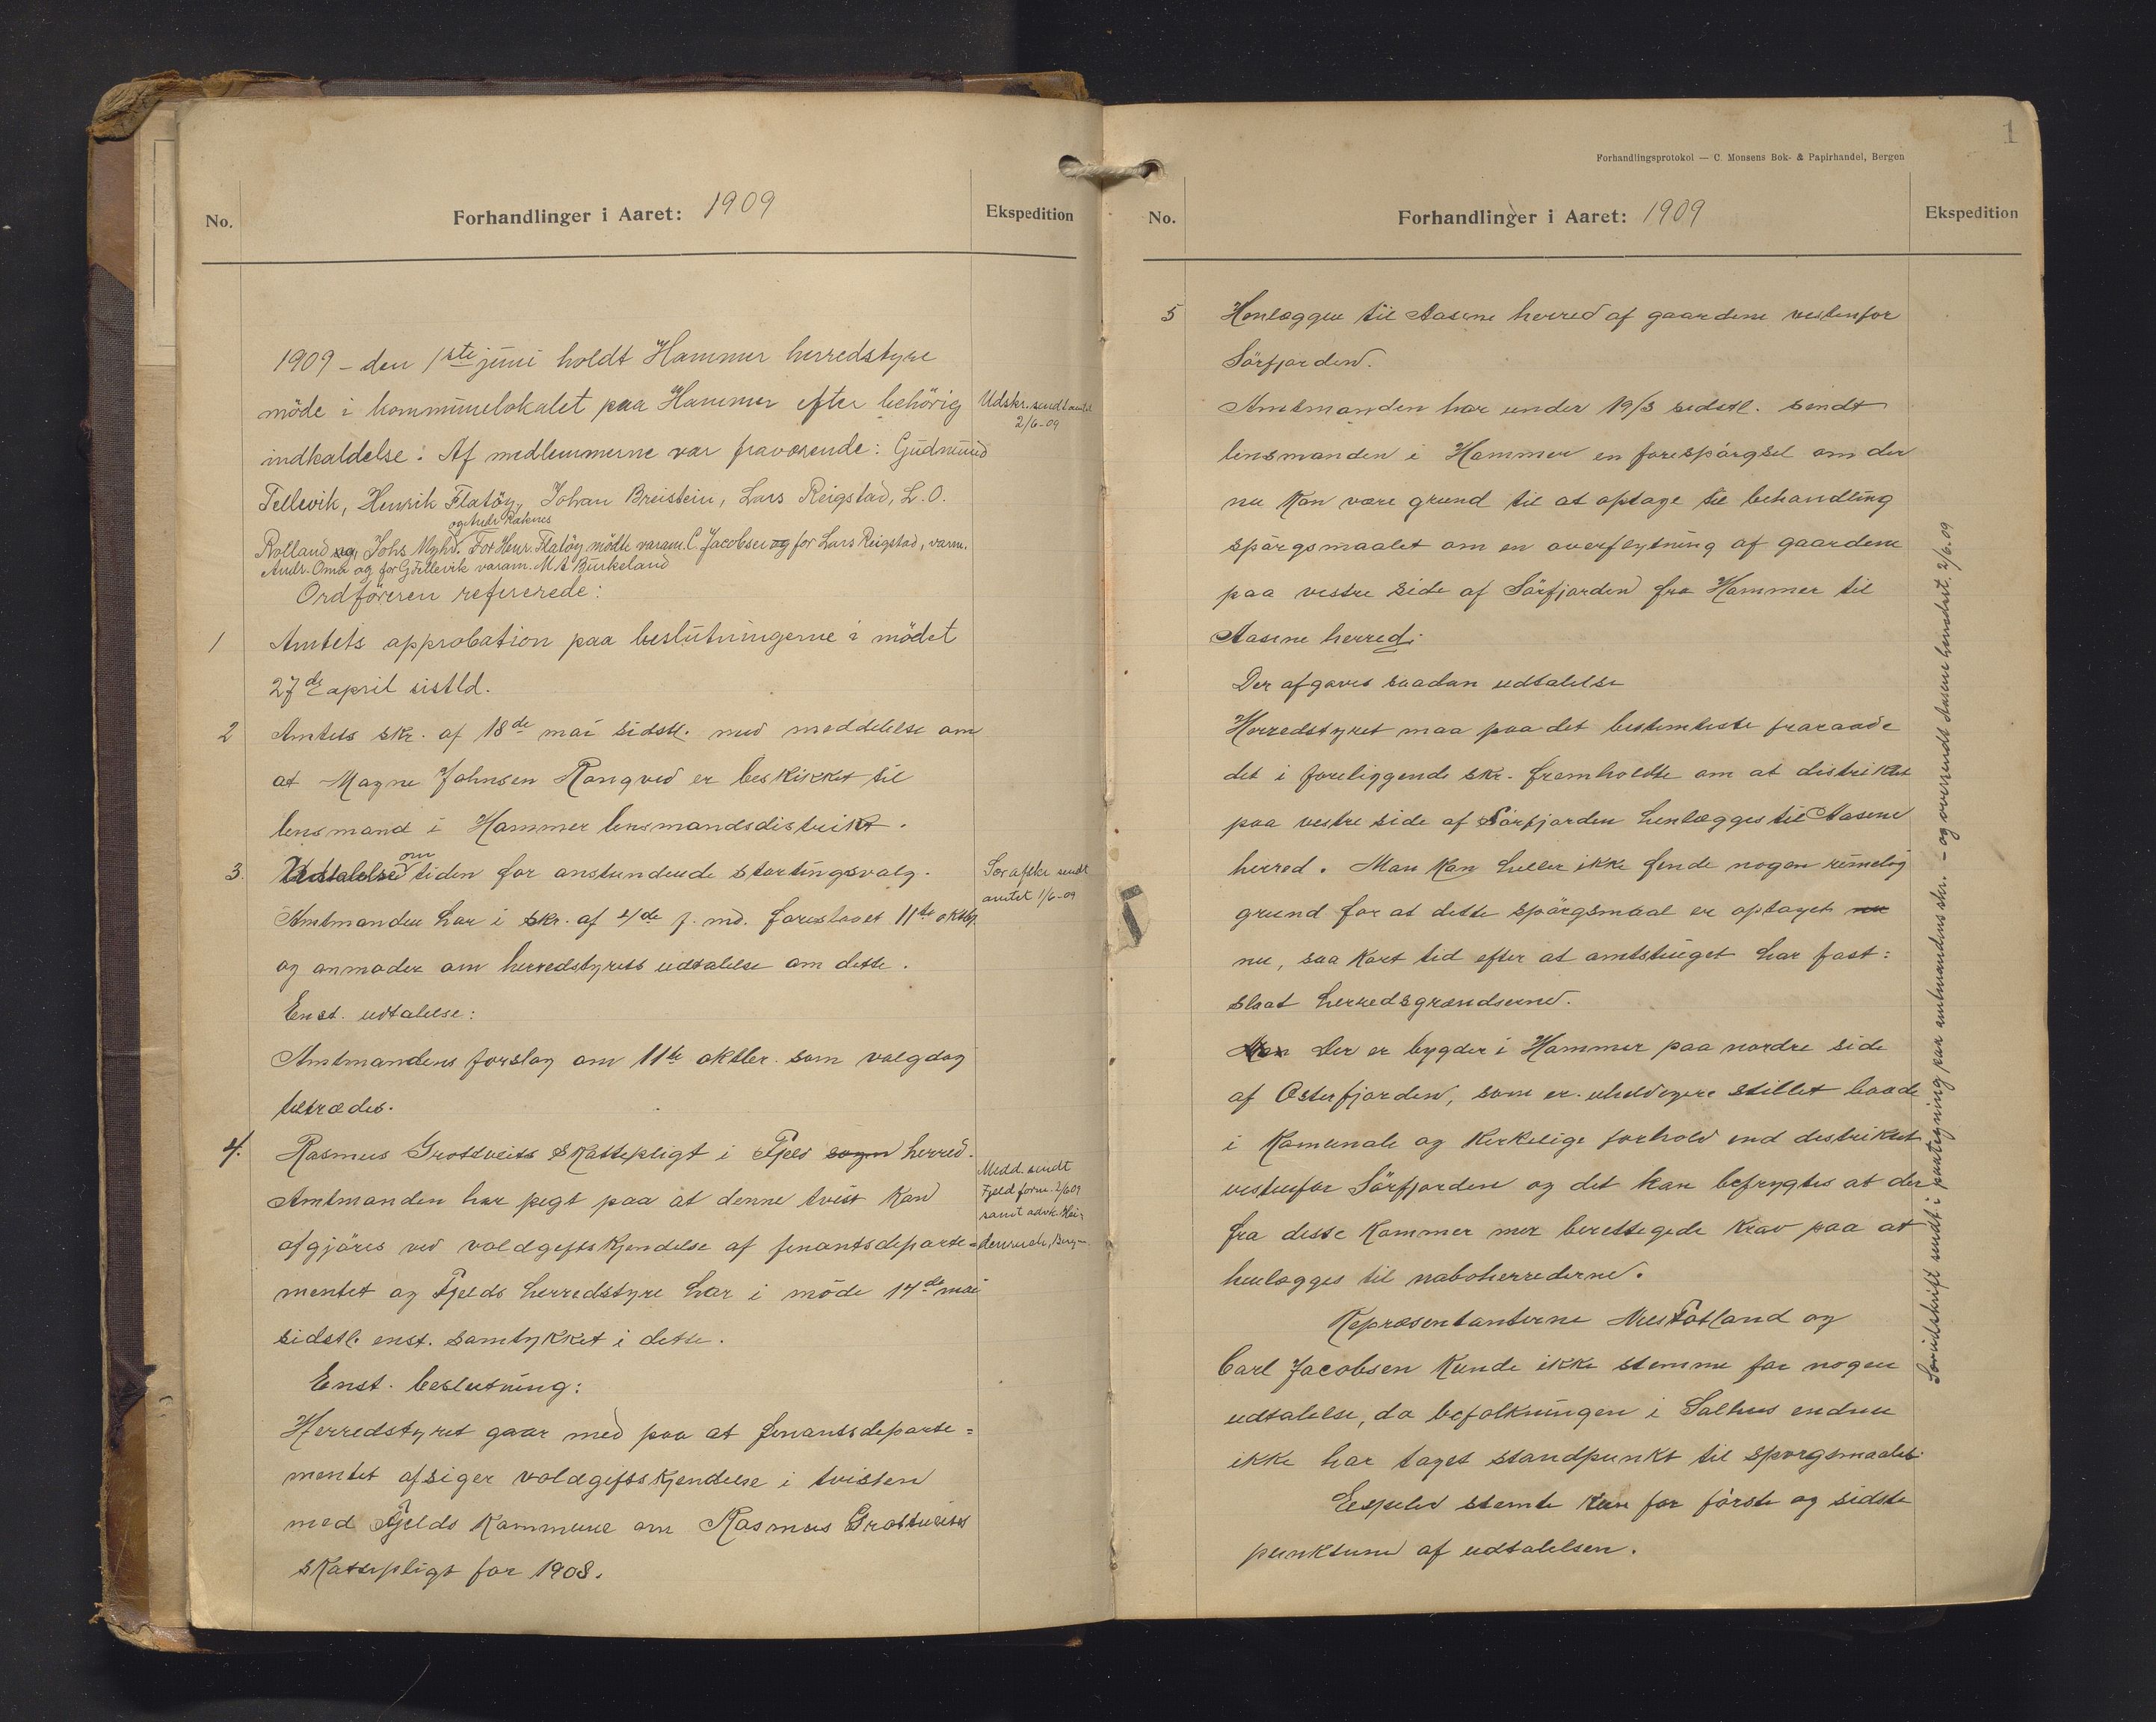 No.
Forhandlinger i Aaret: 1909
Ekspedition
1909 - den 1ste juni holdt Hammer herredstyre
möde i kommunelokalet paa Hammer efter behörig
Udskr. sendt amtet
2/6-09
indkaldelse: Af medlemmerne var fraværende: Gudmund
Tellevik, Henrik Flatöy, Johan Breistein, Lars Reigstad, L. O.
og Andr Raknes
Rolland og Johs Myhr. For Henr. Flatöy mödte varam. C. Jacobsen og for Lars Reigstad, varm.
Andr. Oma og for G Tellevik varam. M A Birkeland
Ordföreren refererede:
1 Amtets approbation paa beslutningerne i mödet
27de april sistld.
2 Amtets skr. af 18de mai sidstl. med meddelelse om
at Magne Johnsen Rongved er beskikket til
lensmand i Hammer lensmandsdistrikt.
3. Udtalelse om tiden for anstundende stortingsvalg.
Særafskr sendt
amtet 1/6-09
Amtmanden har i skr. af 4/de f. md. foreslaaet 11te oktbr.
og anmoder om herredstyrets udtalelse om dette.
Enst. udtalelse:
Amtmandens forslag om 11te oktbr. som valgdag
tiltrædes.
4. Rasmus Grotsveits skattepligt i Fjeld sogn herred.
Medd. sendt
Fjeld form. 2/6 09
samt advk.
Amtmanden har pegt paa at denne tvist kan
afgjöres ved voldgiftskjendelse af finantsdeparte=
mentet og Fjelds herredstyre har i möde 14de mai
sidstl. enst. samtykket i dette.
Enst. beslutning:
Herredstyret gaar med paa at finantsdeparte=
mentet afsiger voldgiftskjendelse i tvisten
med Fjelds kommune om Rasmus Grotsveits
skattepligt for 1908.
1
Forhandlingsprotokol — C. Monsens Bok- & Papirhandel, Bergen
No.
Forhandlinger i Aaret: 1909
Ekspedition
5 Henlæggen til Aasene herred af gaardene vestenfor
Sörfjorden.
Amtmanden har under 19/3 sidstl. sendt
lensmanden i Hammer en forespörgsel om der
nu kan være grund til at optage til behandling
spörgsmaalet om en overflytning af gaardene
paa vestre side af Sörfjorden fra Hammer til
Aasene herred.
Der afgaves saadan udtalelse
Herredstyret maa paa det bestemteste fraraade
det i foreliggende skr. fremholdte om at distriktet
paa vestre side af Sörfjorden henlægges til Aasene
herred. Man kan heller ikke finde nogen rimelig
grund for at dette spörgsmaal er optaget nu
nu, saa kort tid efter at amtstinget har fast:
slaat herredsgrændserne.
Men Der er bygder i Hammer paa nordre side
af Osterfjorden, som er uheldigere stillet baade
i Komunale og kirkelige forhold end distriktet
vestenfor Sörfjorden og det kan befrygtes at der
fra disse kommer mer berettigede krav paa at
henlægges til naboherrederne.
Repræsentanterne Nils Totland og
Carl Jacobsen kunde ikke stemme for nogen
udtalelse, da befolkningen i Salhus endnu
ikke har taget standpunkt til spørgsmaalet.
Eespelid stemte kun for förste og sidste
punktum af udtalelsen.
Særudskrift sendt i paategning paa amtmandens skr. - og oversendt Aasene henskrit. 2/6.09